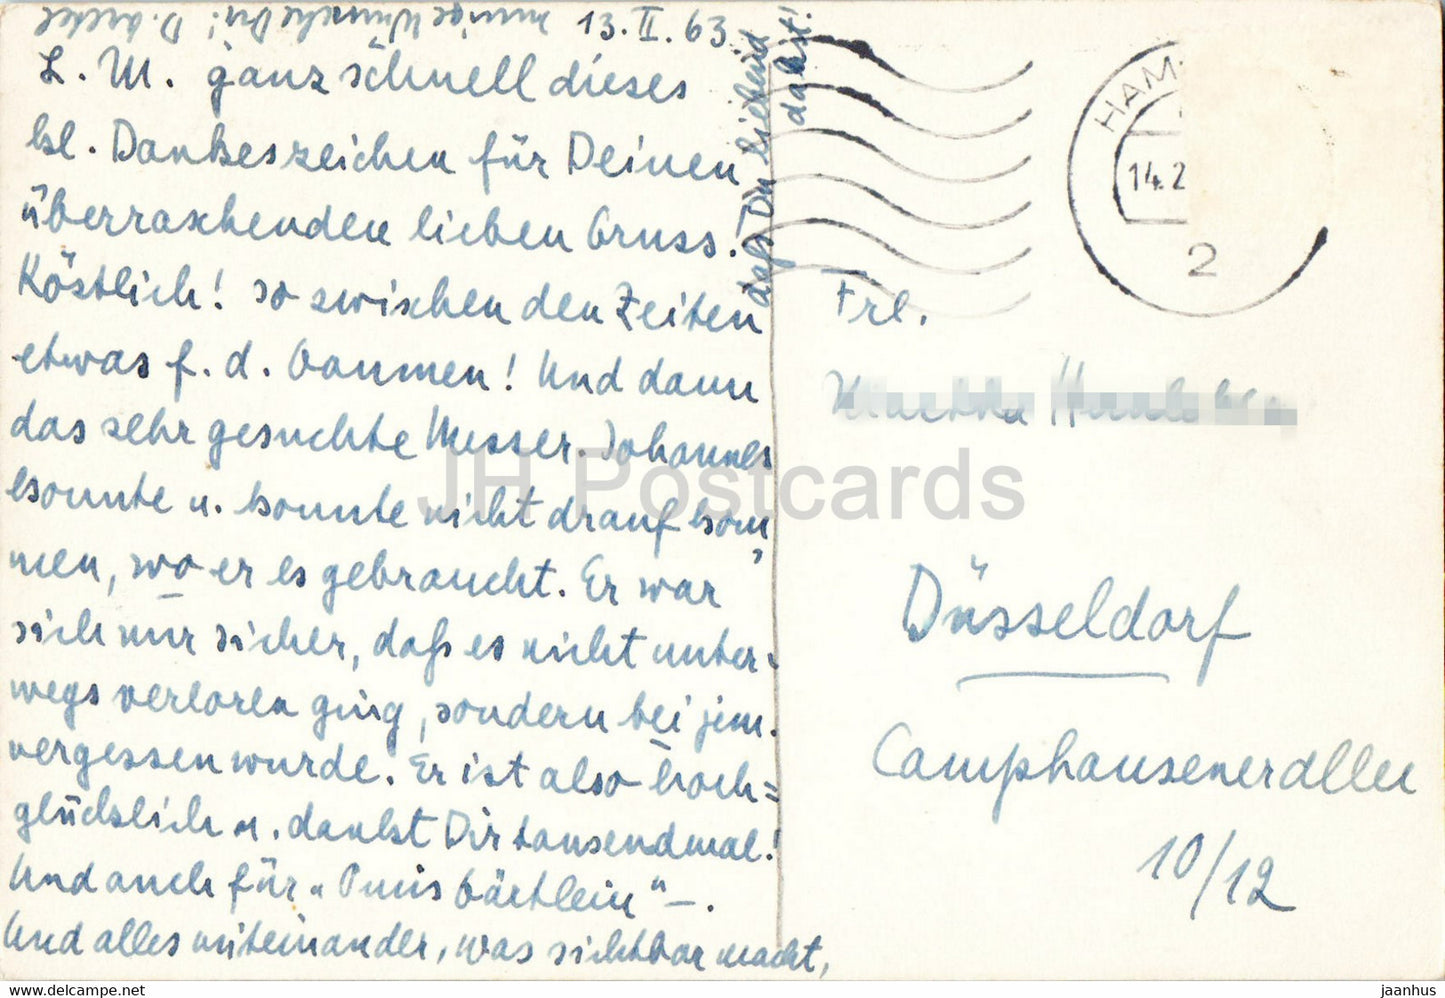 13.II.63.
L. M. ganz schnell dieses
kl. Dankeszeichen für Deinen
überraschenden lieben Gruss!
Köstlich! so zwischen den Zeiten
etwas f. d. Gaumen! Und dann
das sehr gesuchte Messer. Johannes
konnte u. konnte nicht drauf kom
men, wo er es gebraucht. Er war
sich nur sicher, daß es nicht unter-
wegs verloren ging, sondern bei jem.
vergessen wurde. Er ist also hoch=
glücklich u. dankt Dir tausendmal!
Und auch für „Puuis Gärtlein" –.
Und alles miteinander, was sichtbar macht,
daß Du liebend
dabist!
innige Wünsche Dir! D.
HAM
14.2
2
Frl.
Düsseldorf
Camphausenerallee
10/12
JH Postcards
www.delcampe.net
jaanhus